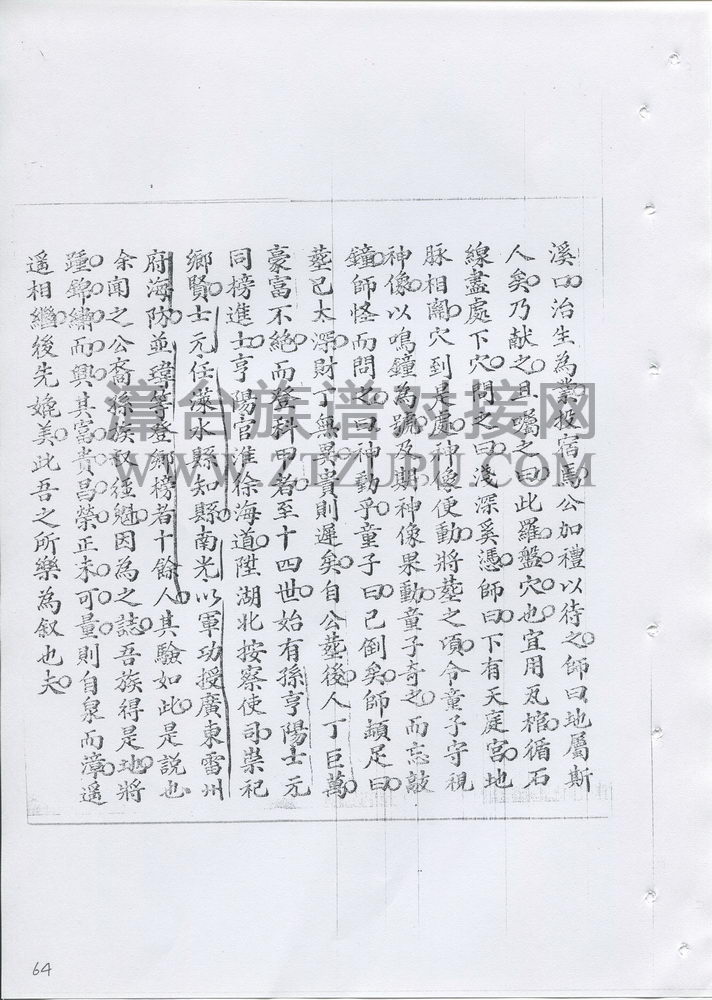 溪口治生為業投宿馬公加禮以待之師曰地屬斯
人矣乃献之且囑之曰此羅盤穴也宜用瓦棺循石
線盡處下穴問之曰淺深奚憑師曰下有天庭宮地
脉相關穴到是處神像便動將葬之頃令童子守視
神像以鳴鐘為號及期神像果動童子奇之而忘敲
鐘師怪而問之曰神動乎童子曰已倒矣師頓足曰
葬已太深財丁無異貴則遲矣自公葬後人丁巨萬
豪富不絶而登科甲者至十四世始有孫亨陽士元
同榜進士亨陽官淮徐海道陞湖北按察使司崇祀
鄉賢士元任漾水縣知縣南光以軍功授廣東雷州
府海防並瑋等登鄉榜者十餘人其驗如此是説也
余聞之公裔孫族叔徑魁因為之誌吾族得是地將
踵錦繡而興其富貴昌榮正未可量則自泉而漳遥
遥相繼後先媲美此吾之所樂為叙也夫
漳台族谱对接网
WWW.ZTZUPU.COM
64